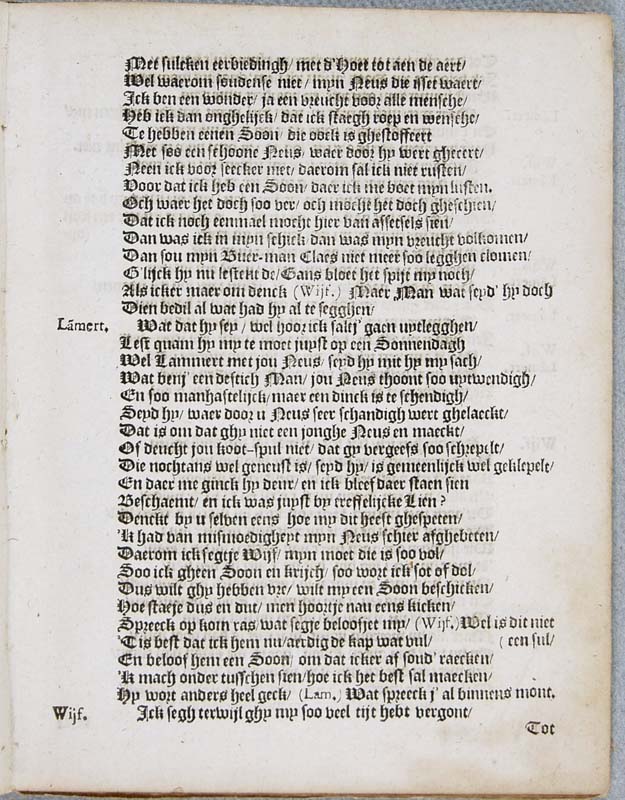 Met sulcken eerbiedingh/ met d'Hoet tot aen de aert/
Wel waerom soudense niet/ myn Neus die isset waert/
Ick ben een wonder/ ja een vreucht voor alle mensche/
Heb ick dan onghelijck/ dat ick staegh roep en wensche/
Te hebben eenen Soon/ die oock is ghestoffeert
Met soo een schoone Neus/ waer door hy wert gheeert/
Neen ick voor seecker niet/ daerom sal ick niet rusten/
Voor dat ick heb een Soon/ daer ick me boet myn lusten.
Och waer het doch soo ver/ och mocht het doch gheschien/
Dat ick noch eenmael mocht hier van assetsels sien/
Dan was ick in myn schick dan was myn vreucht volkomen/
Dan sou myn Buer-man Claes niet meer soo legghen clomen/
G'lijck hy nu lestent de/ Gans bloet het spijt my noch/
Als icker maer om denck (Wijf.) Maer Man wat seyd' hy doch
Dien bedil al wat had hy al te segghen/
Lãmert. Wat dat hy sey/ wel hoor ick salj' gaen uytlegghen/
Lest quam hy my te moet juyst op een Sonnendagh
Wel Lammert met jou Neus/ seyd hy mit hy my sach/
Wat benj' een destich Man/ jou Neus thoont soo uytwendigh/
En soo manhastelijck/ maer een dinck is te schendigh/
Seyd hy/ waer door u Neus seer schandigh wert ghelaeckt/
Dat is om dat ghy niet een jonghe Neus en maeckt/
Of deucht jou koot-spul niet/ dat gy vergeefs soo schrepelt/
Die nochtans wel geneust is/ seyd hy/ is gemeenlijck wel geklepelt/
En daer me ginck hy deur/ en ick bleef daer staen sien
Beschaemt/ en ick was juyst by treffelijcke Lien?
Denckt by u selven eens hoe my dit heest ghespeten/
'K had van mismoedigheyt myn Neus schier afghebeten/
Daerom ick segtje Wijf/ myn moet die is soo vol/
Soo ick gheen Soon en krijch/ soo wort ick sot of dol/
Dus wilt ghy hebben vre/ wilt my een Soon beschicken/
Hoe staeje dus en dut/ men hoortje nau eens kicken/
Spreeck op kom ras wat segje beloofjet my/ (Wijf.) Wel is dit niet
'T is best dat ick hem nu/ aerdig de kap wat vul/ (een sul/
En beloof hem een Soon/ om dat icker af soud' raecken/
'K mach onder tusschen sien/ hoe ick het best sal maecken/
Hy wort anders heel geck/ (Lam.) Wat spreeck j' al binnens mont.
Wijf. Ick segh terwijl ghy my soo veel tijt hebt vergont/
Tot